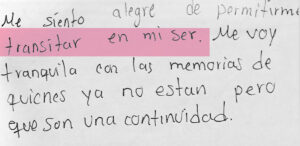 Me siento alegre de permitirme
transitar en mi ser. Me voy
tranquila con las memorias de
quienes ya no estan pero
que son una continuidad.